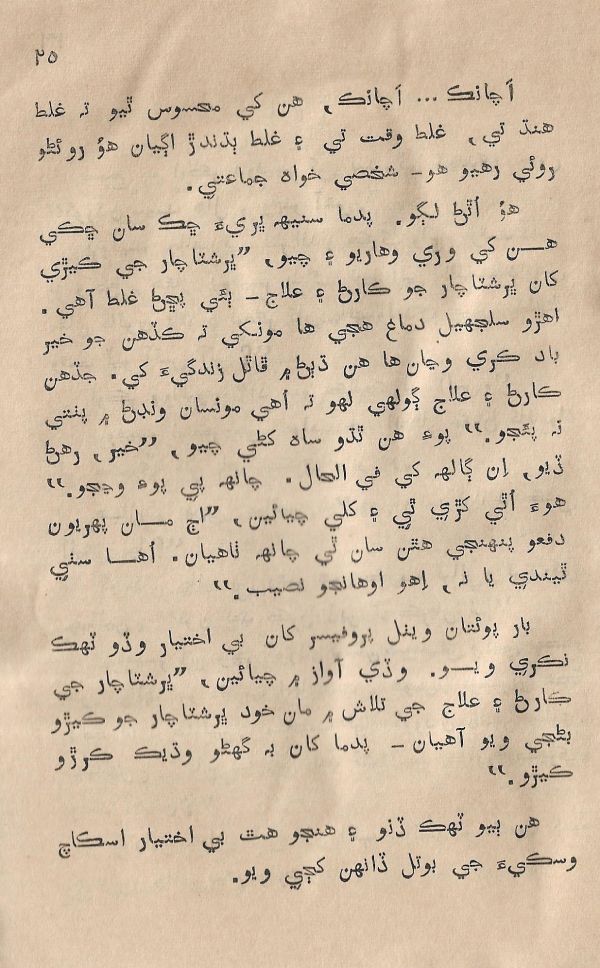 ۲۵
اَچانڪ... اَچانڪ، هن کي محسوس ٿيو تہ غلط
هنڌ تي، غلط وقت تي ۽ غلط ٻڌندڙ اڳيان هوُ روئڻو
روئي رهيو هو۔ شخصي خواہ جماعتي.
هوُ اُٿڻ لڳو. پدما سنيهہ ڀريءَ ڇڪ سان ڇڪي
هـــن کي وري وهاريو ۽ چيو، ”ڀرشٽاچار جي ڪيڙي
کان ڀرشٽاچار جو ڪارڻ ۽ علاج۔ ٻئي پڇڻ غلط آهي.
اهڙو سلجهيل دماغ هجي ها مونکي تہ ڪڏهن جو خير
باد ڪري وڃان ها هن ڌٻڻ ۾ ڦاٿل زندگيءَ کي. جڏهن
ڪارڻ ۽ علاج ڳولهي لهو تہ اُهي مونسان ونڊڻ ۾ پنتي
نہ پئجو.“ پوءِ هن ٿڌو ساہ کڻي چيو، ”خير، رهڻ
ڏيو، اِن ڳالهہ کي في الحال. چانهہ پي پوءِ وڃجو.“
هوءَ اُٿي کڙي ٿي ۽ کلي چيائين، ”اڄ مــان پهريون
دفعو پنهنجي هٿن سان ٿي چانهہ ٺاهيان. اُهــا سٺي
ٿيندي يا نہ، اِهو اوهانجو نصيب.“
بار پوئتان ويٺل پروفيسر کان بي اختيار وڏو ٽهڪ
نڪري ويــو. وڏي آواز ۾ چيائين، ”ڀرشٽاچار جي
ڪارڻ ۽ علاج جي تلاش ۾ مان خود ڀرشٽاچار جو ڪيڙو
بڻجي ويو آهيان۔ پدما کان بہ گهڻو وڌيڪ ڪرڙو
ڪيڙو.“
هن ٻيو ٽهڪ ڏنو ۽ هنجو هٿ بي اختيار اسڪاچ
وسڪيءَ جي بوتل ڏانهن کڄي ويو.